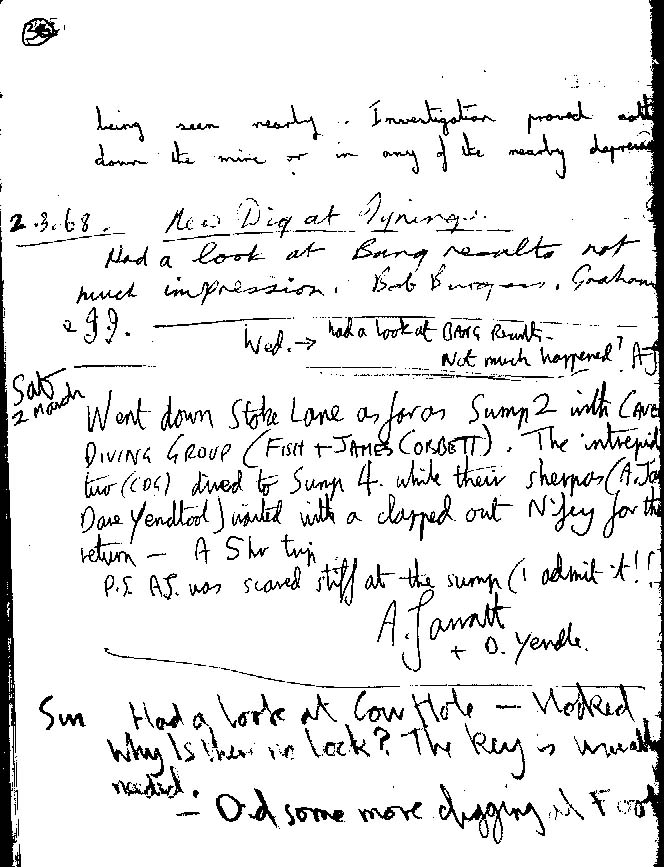 being seen nearby. Investigation proved
down the mine or in any of the nearby
2.3.68. New Dig at Tynings.
Had a look at Bang results not
much impression. Bob Burgess, Graham
& JJ.
Wed. → had a look at BANG Results -
Not much happened? AJ
Sat
2 March
Went down Stoke Lane as far as Sump 2 with CAVE
DIVING GROUP (FISH + JAMES COBBETT). The intrepid
two (CDG) dived to Sump 4. while their sherpas (A.
Dave Yendle ) waited with a clapped out Nife for the
return - A 5hr trip
P.S. AJ. was scared stiff at the sump (I admit it!!
A. Jarratt
+ D. Yendle.
Sun Had a look at Cow Hole - 
Why Is there no lock? The key is usually
needed.
- Did some more digging at